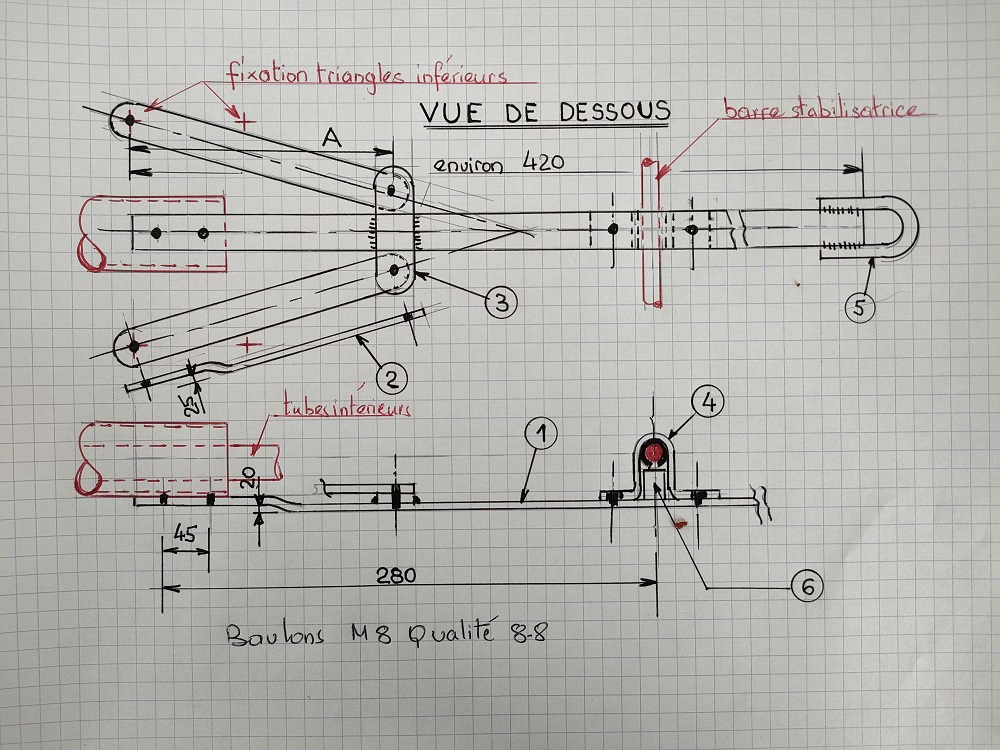 fixation triangles inférieurs
VUE DE DESSOUS
barre stabilisatrice
A
environ 420
3
5
2
25
tubes intérieurs
4
1
20
45
280
6
Boulons M8 Qualité 8-8